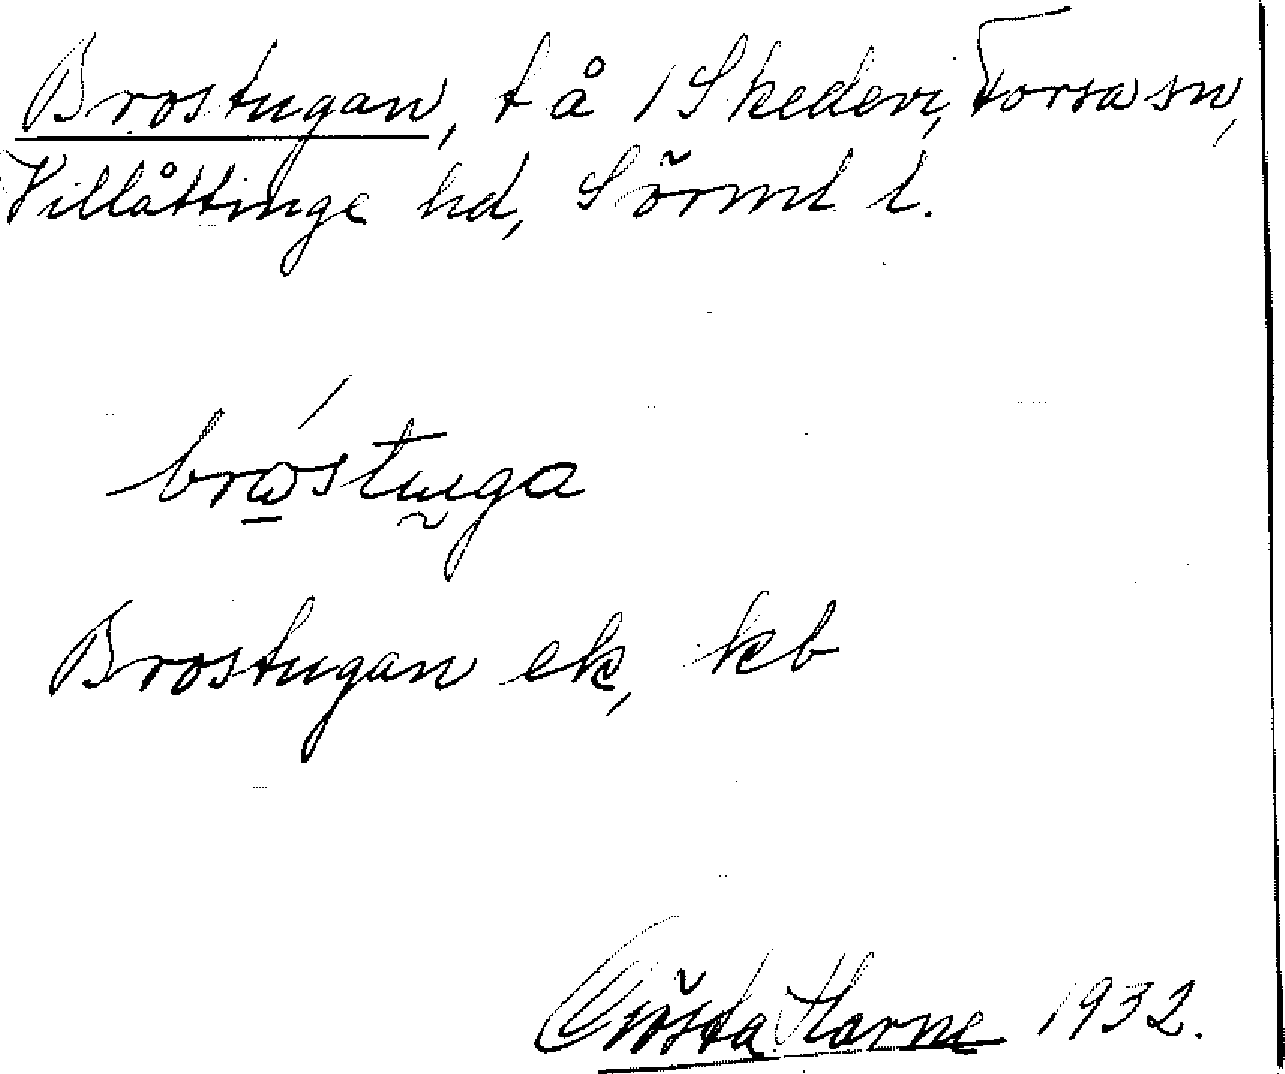 Brostugan, t å 1 Skedevi, Forssa sn,
Villåttinge hd, Sörml l.
bro̱´stṵga
Brostugan ek, kb
Gösta Harne 1932.